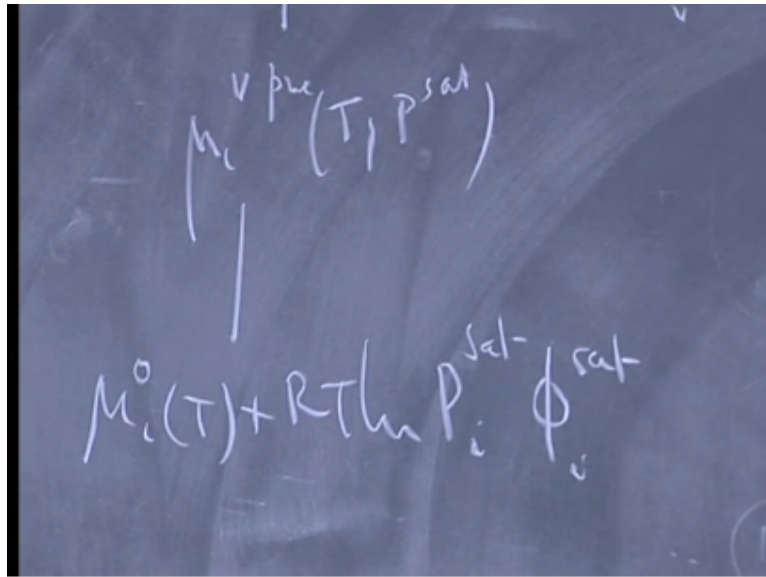 μᵢ^{v pure}(T, P^{sat})
μᵢ⁰(T) + RT ln Pᵢ^{sat} ϕᵢ^{sat}